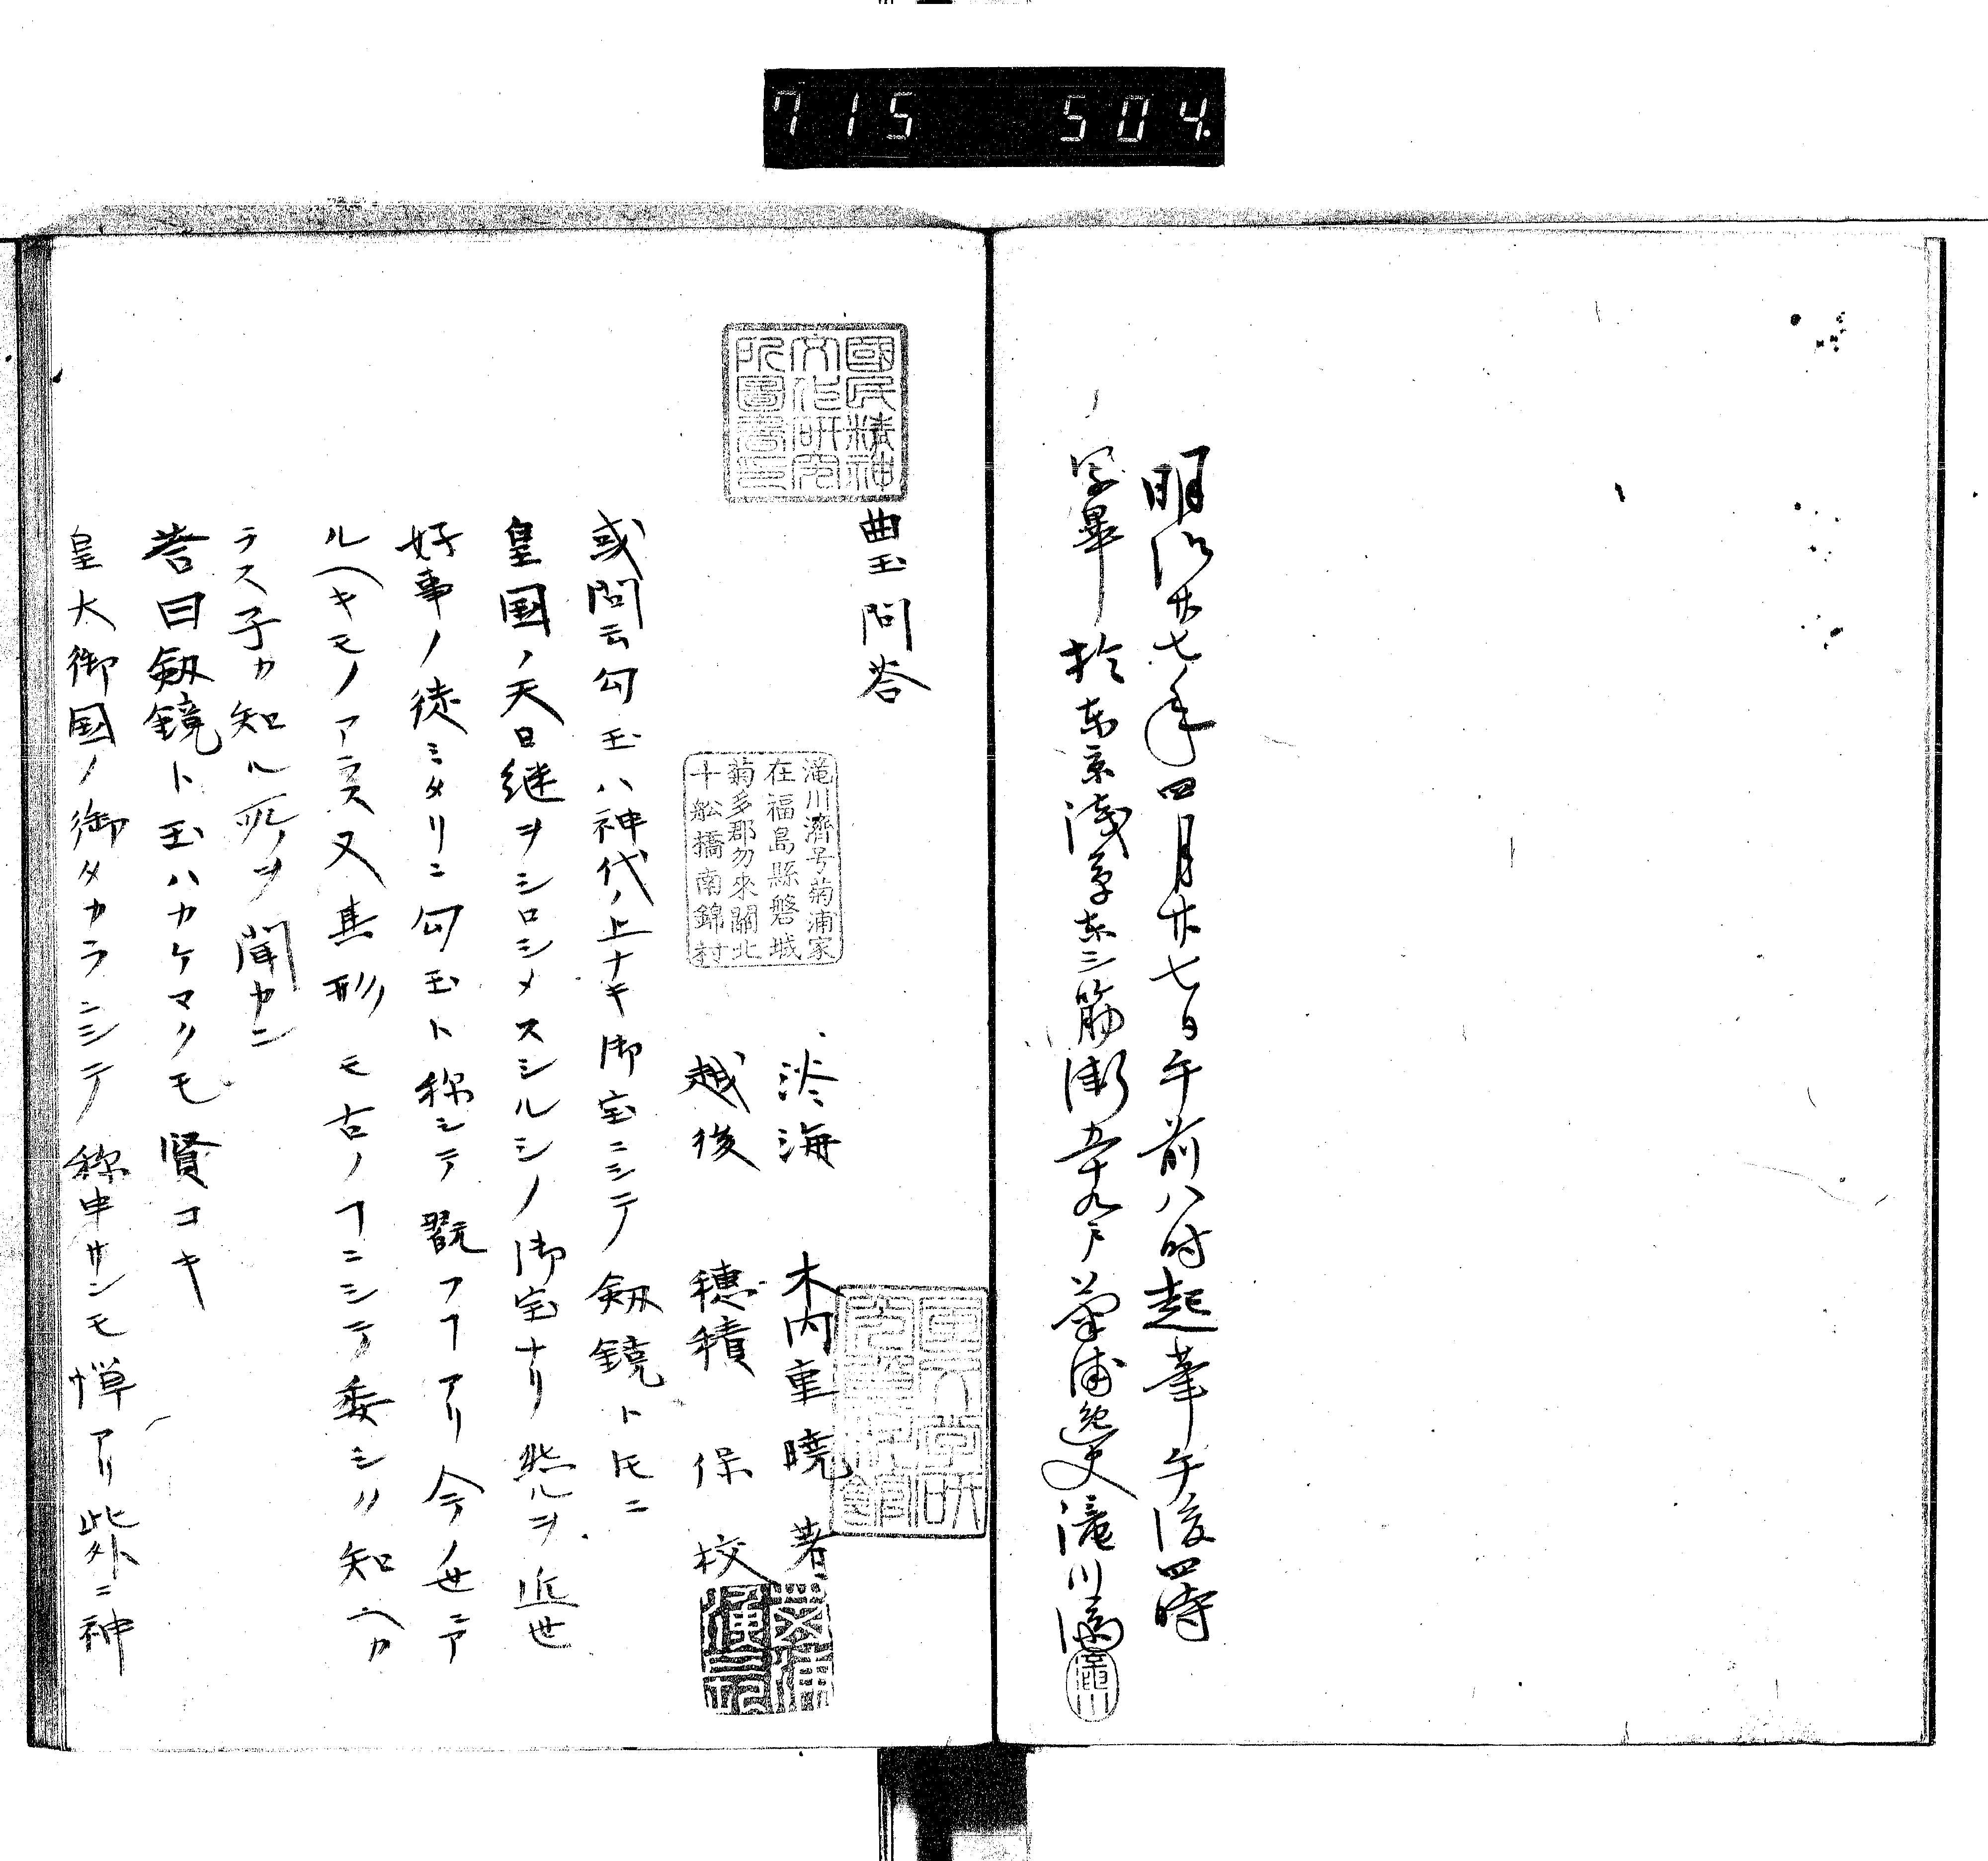 715 504.
明治廿七年四月廿七日午前八时起筆午後四時
写畢 於东京浅草东三筋街五十九戸 菊浦逸史滝川濟
滝川
國民精神
文化研究
所圖書印
曲玉問荅
滝川濟号菊浦家
在福島縣磐城
菊多郡勿來關北
十舩橋南錦村
淡海 木内重暁 著
越後 穂積 保 校
或問云勾玉ハ神代ノ上ナキ御宝ニシテ釼鏡ト𪜈ニ
皇国ノ天日継ヲシロシメスシルシノ御宝ナリ然ルヲ近世
好事ノ徒ミタリニ勾玉ト称シテ翫フヿアリ今ノ世ニア
ルヘキモノアラス又其形モ古ノヿニシテ委シク知ヘカ
ラス子カ知ル所ヲ聞カン
荅曰釼鏡ト玉ハカケマクモ賢コキ
皇大御国ノ御タカラニシテ称申サンモ憚アリ此外ニ神